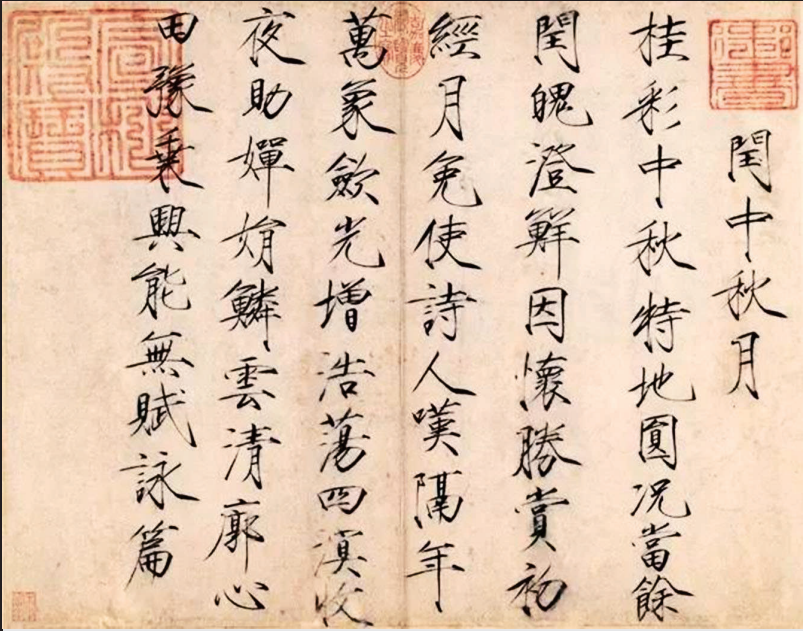 御書
閏中秋月
桂彩中秋特地圓況當餘
閏魄澄鮮因懷勝賞初
經月免使詩人嘆隔年
萬象歛光增浩蕩四溟收
夜助嬋娟鱗雲清廓心
田豫乗興能無賦詠篇
宣和殿寶